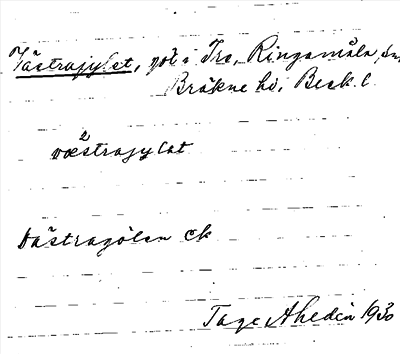 Västragylet, göl i Tre, Ringamåla sn,
Bräkne hd, Blek. l.
2
væstragylat
Västragölen ek
Tage Ahldén 1930